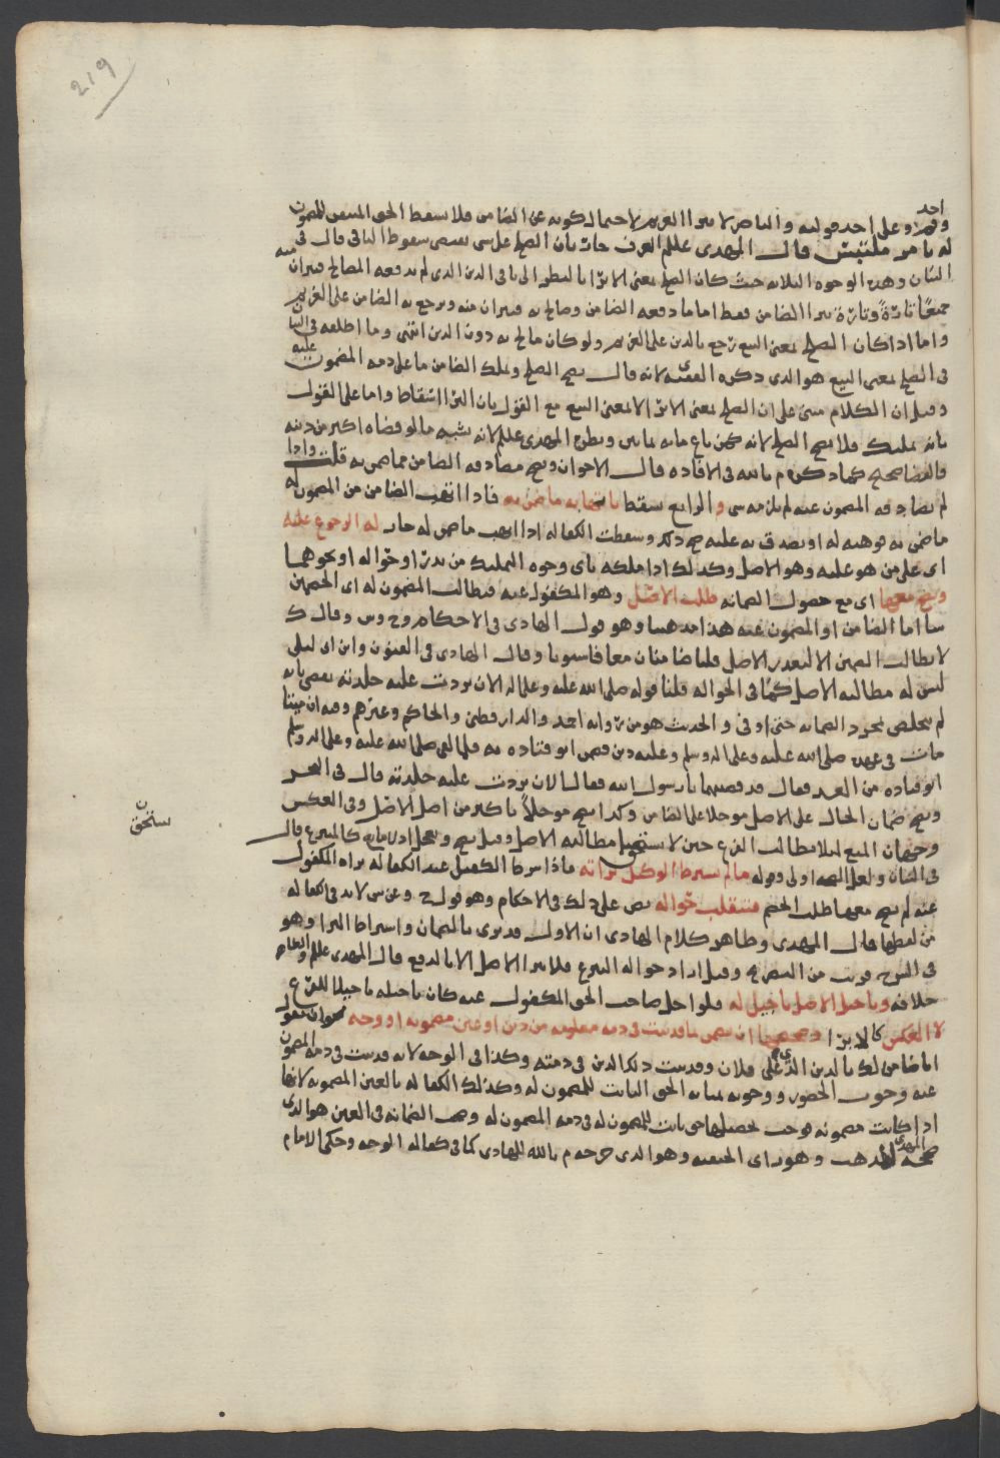 219
احد
وعلى احد قوليه والناصر لا يبرا الغريم لاحتمال كونه عن الضامن فلا يسقط الحق المتيقن للمضمون
له بامر ملتبس قال المهدي علم العرف جار بان الصلح على شي يقتضي سقوط الباقي قال في
البيان وهذه الوجوه الثلاثه حيث كان الصلح بمعنى الابرا بالنظر الى باقي الدين الذي لم يدفعه المصالح فيبران منه
جميعًا تارةً وتارة يبرا الضامن فقط اما ما دفعه الضامن وصالح به فيبران منه ويرجع به الضامن على الغريم
واما اذا كان الصلح بمعنى البيع رجع بالدين على الغريم ولو كان ما صالح به دون الدين انتهى وما اطلقه في البيان
في الصلح بمعنى البيع هو الذي ذكره الفقيه لانه قال يصح الصلح ويملك الضامن ما على ذمه المضمون عليه
وقيل ان الكلام مبني على ان الصلح بمعنى الابرا لا بمعنى البيع مع القول بان البرا اسقاط واما على القول
بانه تمليك فلا يصح الصلح لانه كمن باع مايه بمايتين ونظره المهدي علم لانه شبيه بما لو قضاه اكثر من دينه
فالقضا صحيح كما ذكره م بالله في الافاده قال الاخوان ويصح مصادقه الضامن مما ضمن به قلت واذا
لم يصادقه المضمون عنه لم يلزمه شي و الرابع يسقط باتهابه ما ضمن به فاذا اتهب الضامن من المضمون له
ما ضمن به فوهبه له او تصدق به عليه صح ذلك وسقطت الكفاله اذا اتهب ما ضمن له جاز له الرجوع عليه
اي على من هو عليه وهو الاصل وكذلك اذا ملكه باي وجوه التمليك من نذر او حواله او نحوهما
ويصح معها اي مع حصول الضمانه طلب الاصل وهو المكفول عنه فيطالب المضمون له اي الخصمين
شا اما الضامن او المضمون عنه هذا مذهبنا وهو قول الهادي في الاحكام وح وش وقال ك
لا يطالب الضمين الا لتعذر الاصل قلنا ضامنان معا فاستويا وقال الهادي في الفنون وابن ابي ليلى
ليس له مطالبه الاصل كما في الحواله قلنا قوله صلى الله عليه وعلى اله الان بردت عليه جلدته يقتضي بانه
لم يتخلص بمجرد الضمانه حتى اوفى والحديث هو من روايه احمد والدارقطني والحاكم وغيرهم وفيه ان ميتا
مات في عهده صلى الله عليه وعلى اله وسلم وعليه دين فضمن ابو قتاده به فلما لقي صلى الله عليه وعلى اله وسلم
ابو قتاده من الغد فقال قد قضيتها يا رسول الله فقال الان بردت عليه جلدته قال في البحر
ويصح ضمان الحال على الاصل موجلا على الضامن وكذا يصح موجلاً باكثر من اجل الاصل وفي العكس
وجهان المنع ليلا يطالب الفرع حين لا يستحق مطالبه الاصل وقيل يصح ويعجل اذ لا مانع كالمتبرع قال
ستحق
في البيان ولعل الصحه اولى وقوله ما لم يشترط الوكيل براته فاذا شرط الكفيل عند الكفاله براه المكفول
عنه لم يصح معها طلب الخصم فتنقلب حواله نص على ذلك في الاحكام وهو قول ح وعن ش لا بد في الكفاله
من لفظها قال المهدي وظاهر كلام الهادي ان الاول قد برى بالضمان واشتراط البرا وهو
في الشرح قريب من التصريح وقيل اراد حواله التبرع فلا يبرا الاصل الا بالدفع قال المهدي علم والظاهر
خلافه وتاجيل الاصل تاجيل له فلو اجل صاحب الحق المكفول عنه كان تاجيله تاجيلا للفرع
لا العكس كالابرا وصحيحها ان يضمن بما قد ثبت في ذمه معلومه من دين او عين مضمونه او وجه نحو ان يقول
انا ضامن لك بالدين الذي على فلان وقد ثبت ذلك الدين في ذمته وكذا في الوجه لانه قد ثبت في ذمه المضمون
عنه وجوب الحضور ووجوبه بمثابه الحق الثابت للمضمون له وكذلك الكفاله بالعين المضمونه لانها
اذا كانت مضمونه فوجب تحصيلها حق ثابت للمضمون له في ذمه المضمون له وصحه الضمانه في العين هو الذي
صححه المهدي للمذهب وهو راي الحنفيه وهو الذي خرجه م بالله للهادي كما في كفاله الوجه وحكى الامام